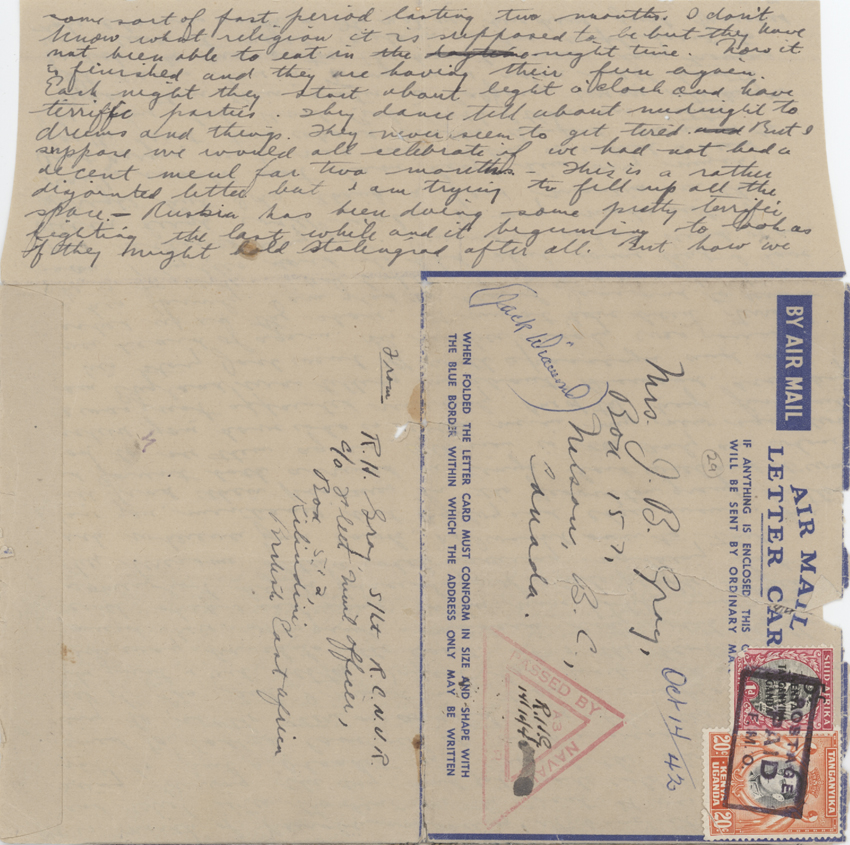 some sort of fast period lasting two months. I don't
know what religion it is supposed to be but they have
not been able to eat in the night time. Now it
is finished and they are having their fun again.
Each night they start about eight o'clock and have
terrific parties. They dance till about midnight to
drums and things. They never seem to get tired and But I
suppose we would all celebrate if we had not had a
decent meal for two months - This is a rather
disjointed letter but I am trying to fill up all the
space. - Russia has been doing some pretty terrific
fighting the last while and it beginning to look as
if they might hold Stalingrad after all. But how we
BY AIR MAIL
AIR MAIL
LETTER CAR
IF ANYTHING IS ENCLOSED THIS C
WILL BE SENT BY ORDINARY MA
(29)
Mrs. J. B. Gray,
Box 157,
Nelson, B.C.,
Canada.
Oct 14/42
(Jack Diamond)
WHEN FOLDED THE LETTER CARD MUST CONFORM IN SIZE AND SHAPE WITH
THE BLUE BORDER WITHIN WHICH THE ADDRESS ONLY MAY BE WRITTEN
PASSED BY
NAVAL
R.H.G.
14/10/42
SUID-AFRIKA
KENYA
TANGANYIKA
UGANDA
1d
TANGANYIKA
KENYA
UGANDA
20c
20c
POSTAGE
PAID
From
R. H. Gray S/Lt R.C.N.V.R.
c/o Fleet Mail Officer,
Box 512
Kilindini
British East Africa